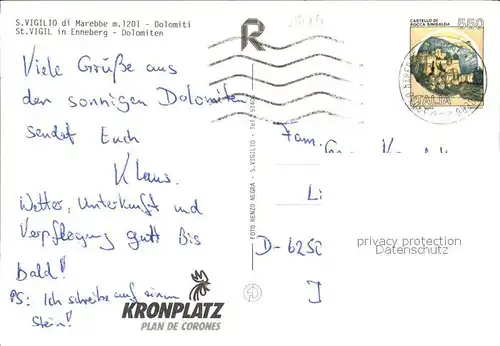 S.VIGILIO di Marebbe m.1201 - Dolomiti
St.VIGIL in Enneberg - Dolomiten
R
CASTELLO DI
ROCCA SINIBALDA
550
ITALIA
Viele Grüße aus
den sonnigen Dolomiten
sendet Euch
Klaus.
Wetter, Unterkunft und
Verpflegung gut! Bis
bald!
PS: Ich schreibe auf einem
Stein!
FOTO RENZO NEGRA - S.VIGILIO - Tel.
Fam.
Li
D-6250
privacy protection
Datenschutz
KRONPLATZ
PLAN DE CORONES